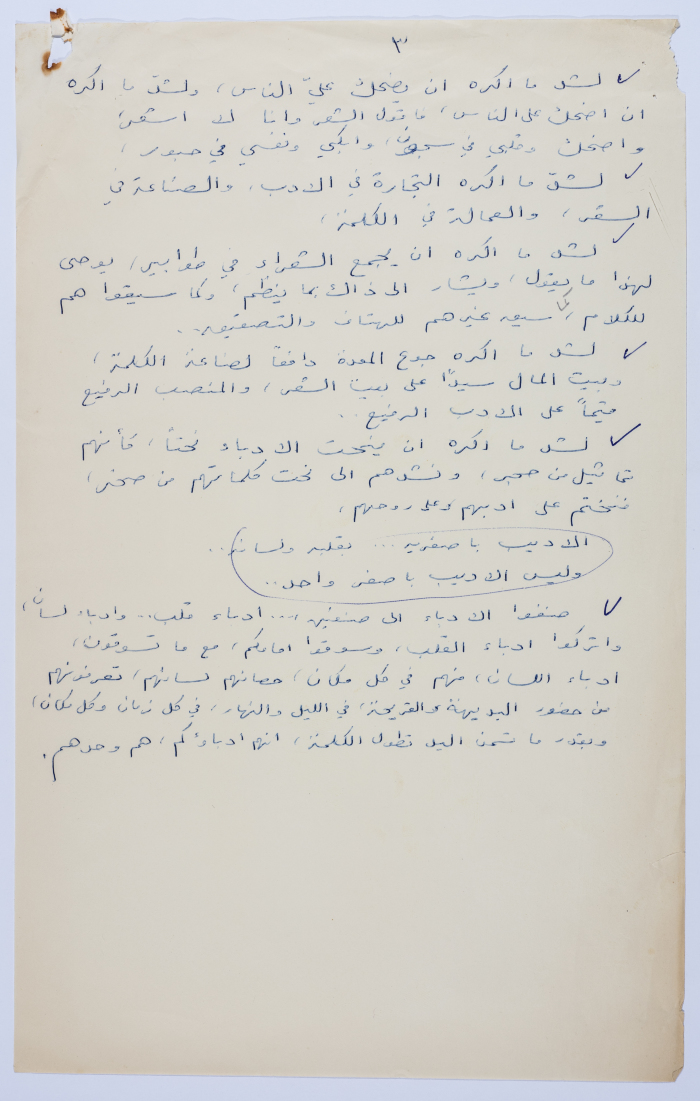 ٣
لشد ما اكره ان يضحك عليّ الناس، ولشدّ ما اكره
ان اضحك على الناس، فاقول الشعر وانا لا اشعر،
واضحك وقلبي في سجون، وابكي ونفسي في حبور،
لشدّ ما اكره التجارة في الادب، والصناعة في
الشعر، والعمالة في الكلمة،
لشد ما اكره ان يجمع الشعراء في طوابير، يوحى
لهذا ما يقول، ويشار الى ذاك بما ينظم، وكما سيقوا هم
للكلام، سيق غيرهم للهتاف والتصفيق..
لشد ما اكره جوع المعدة دافعاً لصناعة الكلمة،
وبيت المال سيداً على بيت الشعر، والمنصب الرفيع
قيّماً على الادب الرفيع..
لشد ما اكره ان ينحت الادباء نحتاً، كأنهم
تماثيل من حجر، ونشدهم الى نحت كلماتهم من صخر،
فنختم على ادبهم وعلى روحهم،
الاديب باصغريه... بقلبه ولسانه..
وليس الاديب باصغر واحد..
صنفوا الادباء الى صنفين،... ادباء قلب.. وادباء لسان،
واتركوا ادباء القلب، وسوقوا امامكم، مع ما تسوقون،
ادباء اللسان، منهم في كل مكان، حصانهم لسانهم، تعرفونهم
من حضور البديهة والقريحة، في الليل والنهار، في كل زمان وكل مكان،
وبقدر ما تسمن اليد تطول الكلمة، انهم ادباؤكم، هم وحدهم.